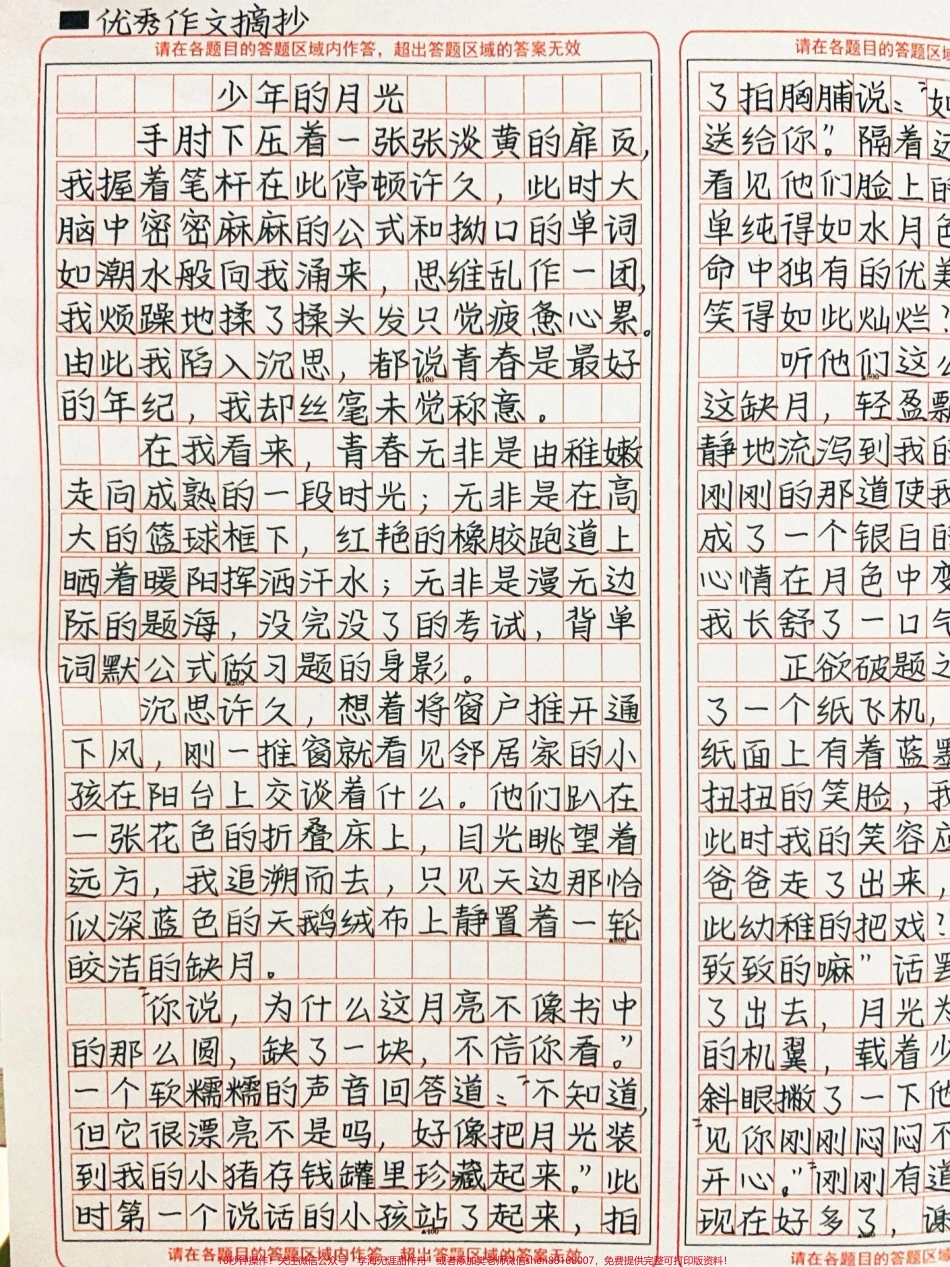 优秀作文摘抄
请在各题目的答题区域内作答，超出答题区域的答案无效
少年的月光
手肘下压着一张张淡黄的扉页，
我握着笔杆在此停顿许久，此时大
脑中密密麻麻的公式和拗口的单词
如潮水般向我涌来，思维乱作一团，
我烦躁地揉了揉头发只觉疲惫心累。
由此我陷入沉思，都说青春是最好
的年纪，我却丝毫未觉称意。
在我看来，青春无非是由稚嫩
走向成熟的一段时光；无非是在高
大的篮球框下，红艳的橡胶跑道上
晒着暖阳挥洒汗水；无非是漫无边
际的题海，没完没了的考试，背单
词默公式做习题的身影。
沉思许久，想着将窗户推开通
下风，刚一推窗就看见邻居家的小
孩在阳台上交谈着什么。他们趴在
一张花色的折叠床上，目光眺望着
远方，我追溯而去，只见天边那恰
似深蓝色的天鹅绒布上静置着一轮
皎洁的缺月。
“你说，为什么这月亮不像书中
的那么圆，缺了一块，不信你看。”
一个软糯糯的声音回答道：“不知道，
但它很漂亮不是吗，好像把月光装
到我的小猪存钱罐里珍藏起来。”此
时第一个说话的小孩站了起来，拍
请在各题目的答题区域内作答，超出答题区域的答案无效
请在各题目的答题区域
了拍胸脯说：“如
送给你”隔着远
看见他们脸上的
单纯得如水月色
命中独有的优美
笑得如此灿烂？
听他们这么
这缺月，轻盈飘
静地流泻到我的
刚刚的那道使我
成了一个银白的
心情在月色中变
我长舒了一口气
正欲破题之
了一个纸飞机，
纸面上有着蓝墨
扭扭的笑脸，我
此时我的笑容应
爸爸走了出来，
此幼稚的把戏？
致致的嘛”话罢
了出去，月光为
的机翼，载着少
斜眼撇了一下他
“见你刚刚闷闷不
开心。”“刚刚有道
现在好多了，谢
请在各题目的答题区域